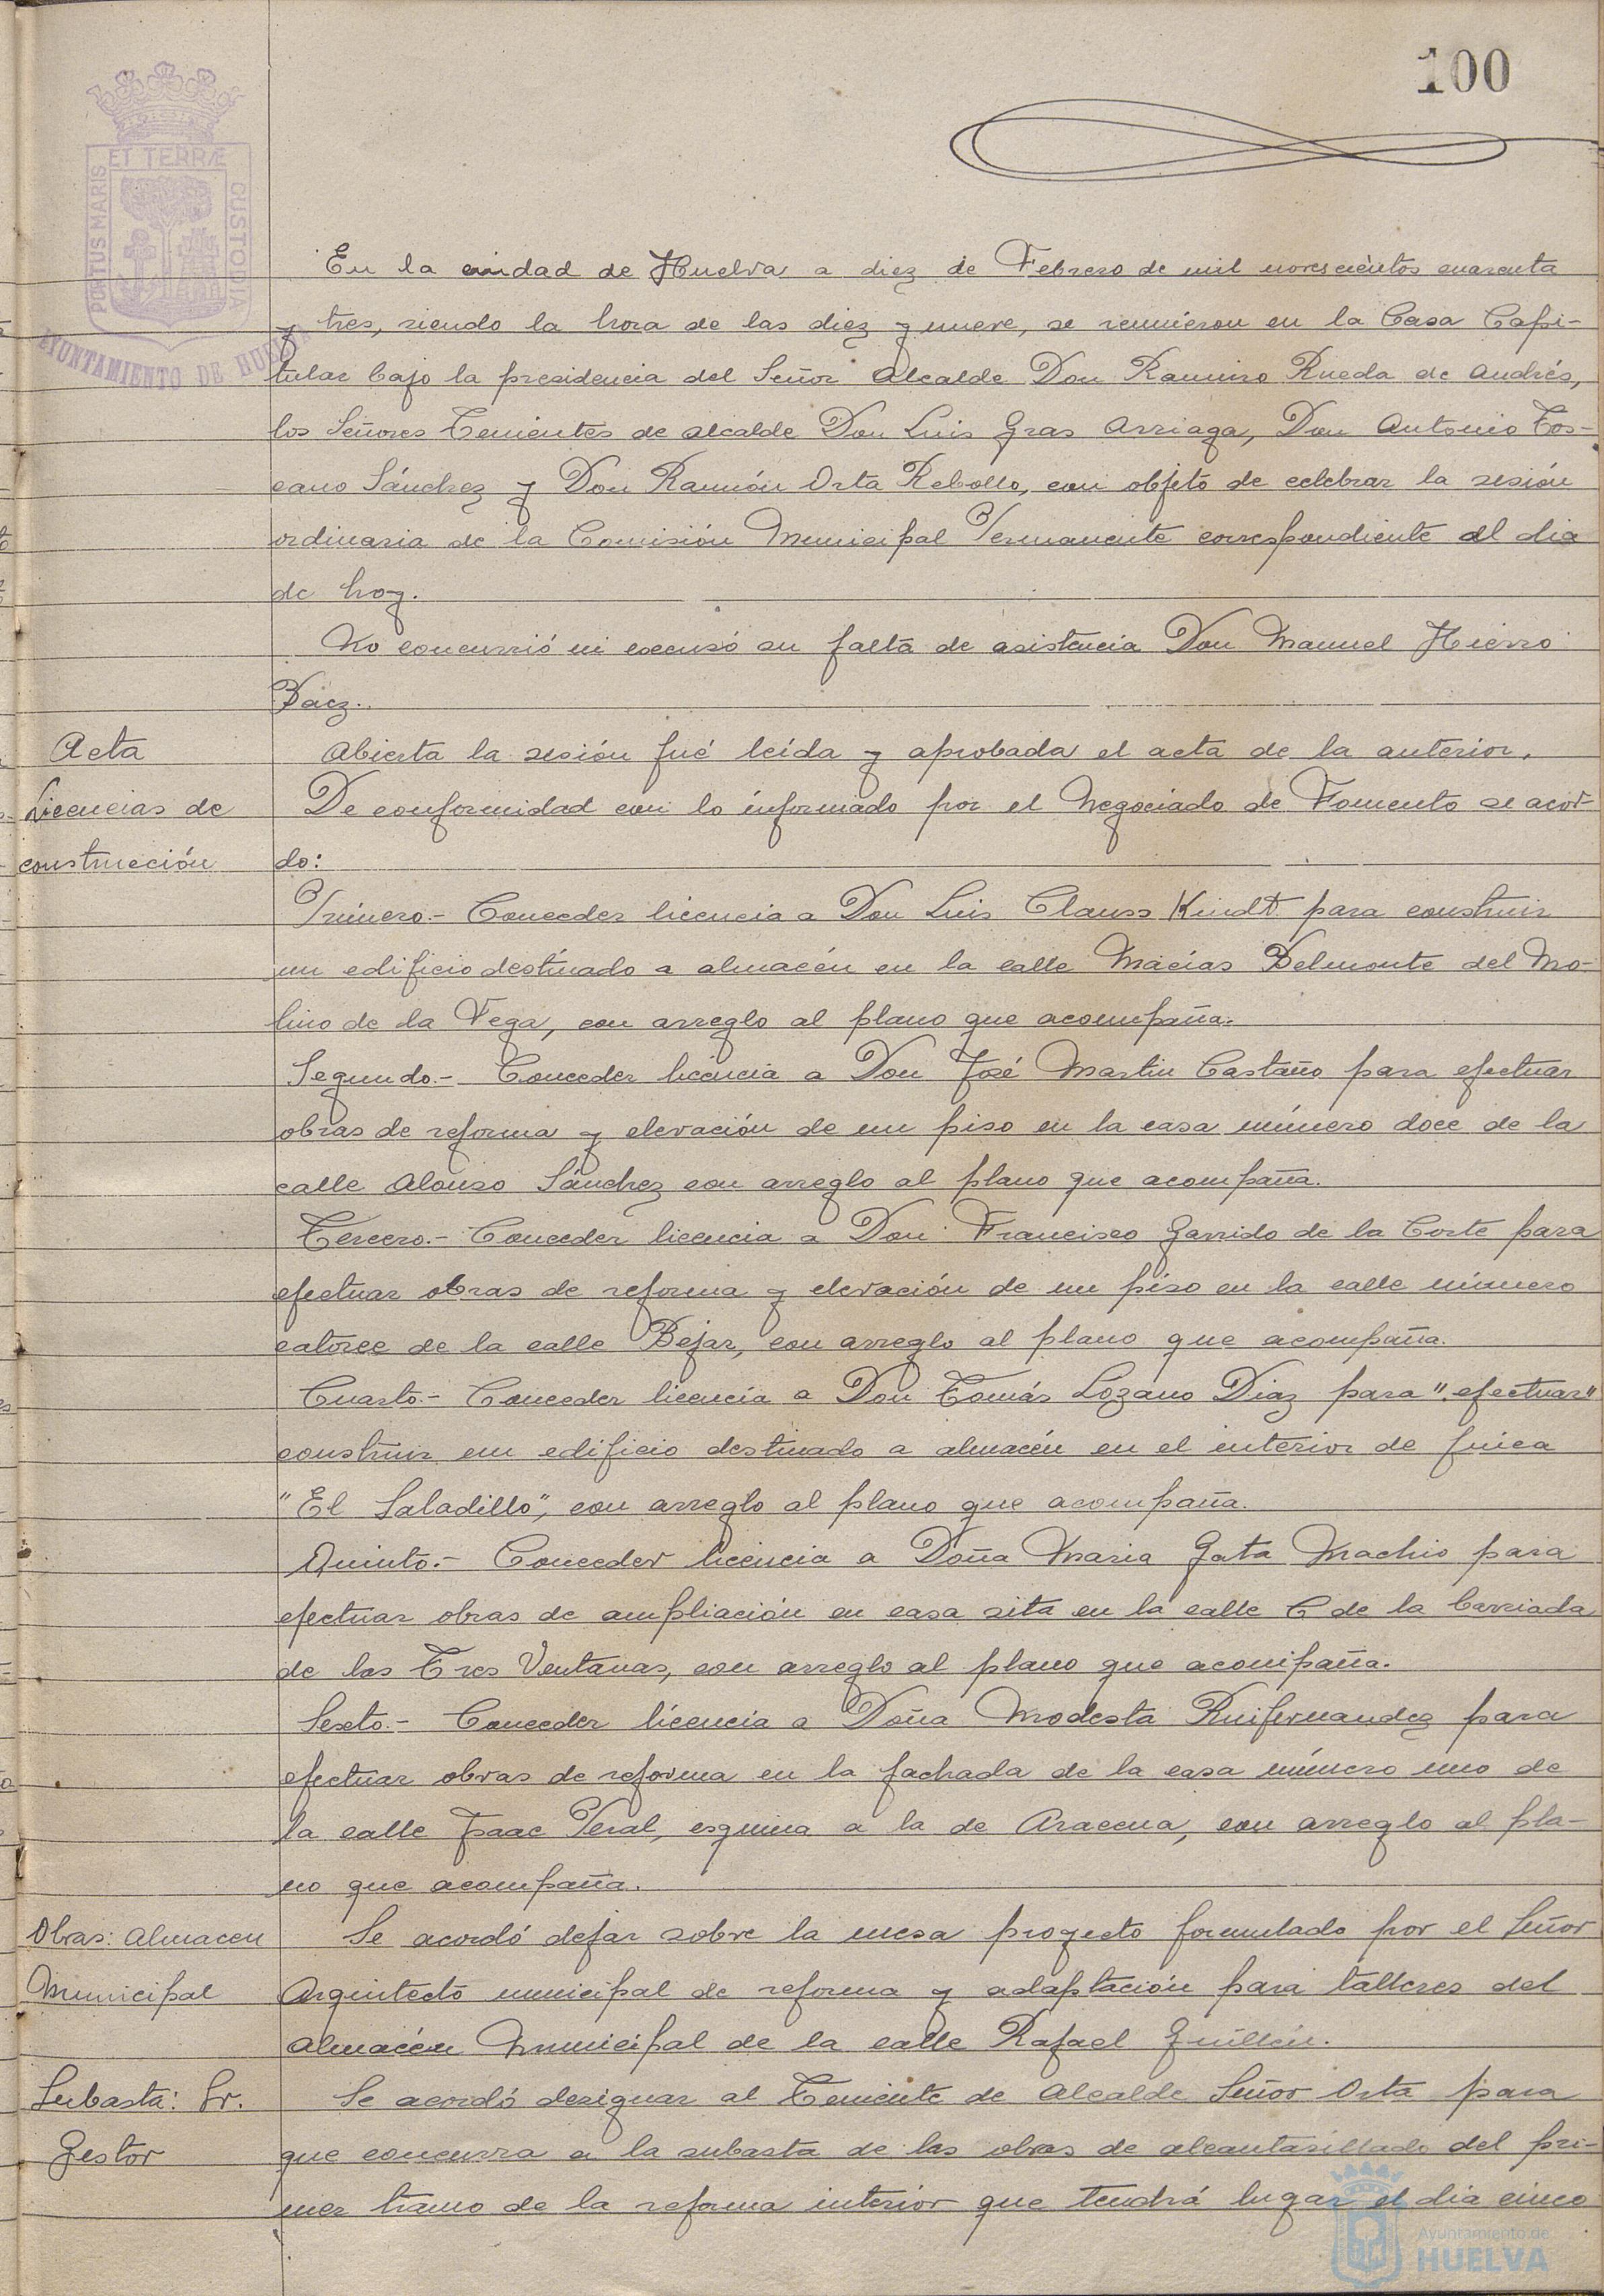 100
PORTUS MARIS ET TERRÆ CUSTODIA
AYUNTAMIENTO DE HUELVA
En la ciudad de Huelva a diez de Febrero de mil novescientos cuarenta
y tres, siendo la hora de las diez y nueve, se reunieron en la Casa Capi-
tular bajo la presidencia del Señor Alcalde Don Ramiro Rueda de Andrés,
los Señores Tenientes de alcalde Don Luis Gras Arriaga, Don Antonio Tos-
cano Sánchez y Don Ramón Orta Rebollo, con objeto de celebrar la sesión
ordinaria de la Comisión Municipal Permanente correspondiente al dia
de hoy.
No concurrió ni excusó su falta de asistencia Don Manuel Hierro
Baez.
Acta
Abierta la sesión fué leída y aprobada el acta de la anterior.
Licencias de
construcción
De conformidad con lo informado por el Negociado de Fomento se acor-
do:
Primero.- Conceder licencia a Don Luis Clauss Kindt para construir
un edificio destinado a almacén en la calle Macías Belmonte del Mo-
lino de la Vega, con arreglo al plano que acompaña.
Segundo.- Conceder licencia a Don José Martin Castaño para efectuar
obras de reforma y elevación de un piso en la casa número doce de la
calle Alonso Sánchez con arreglo al plano que acompaña.
Tercero.- Conceder licencia a Don Francisco Garrido de la Corte para
efectuar obras de reforma y elevación de un piso en la calle número
catorce de la calle Bejar, con arreglo al plano que acompaña.
Cuarto.- Conceder licencia a Don Tomás Lozano Diaz para "efectuar"
construir un edificio destinado a almacén en el interior de finca
"El Saladillo", con arreglo al plano que acompaña.
Quinto.- Conceder licencia a Doña Maria Gata Machio para
efectuar obras de ampliación en casa sita en la calle C de la barriada
de las Tres Ventanas, con arreglo al plano que acompaña.
Sexto.- Conceder licencia a Doña Modesta Ruifernandez para
efectuar obras de reforma en la fachada de la casa número uno de
la calle Isaac Peral, esquina a la de Aracena, con arreglo al pla-
no que acompaña.
Obras: Almacen
Municipal
Se acordó dejar sobre la mesa proyecto formulado por el Señor
Arquitecto municipal de reforma y adaptación para talleres del
almacén Municipal de la calle Rafael Guillén.
Subasta: Sr.
Gestor
Se acordó designar al Teniente de Alcalde Señor Orta para
que concurra a la subasta de las obras de alcantarillado del pri-
mer tramo de la reforma interior que tendrá lugar el dia cinco
Ayuntamiento de
HUELVA